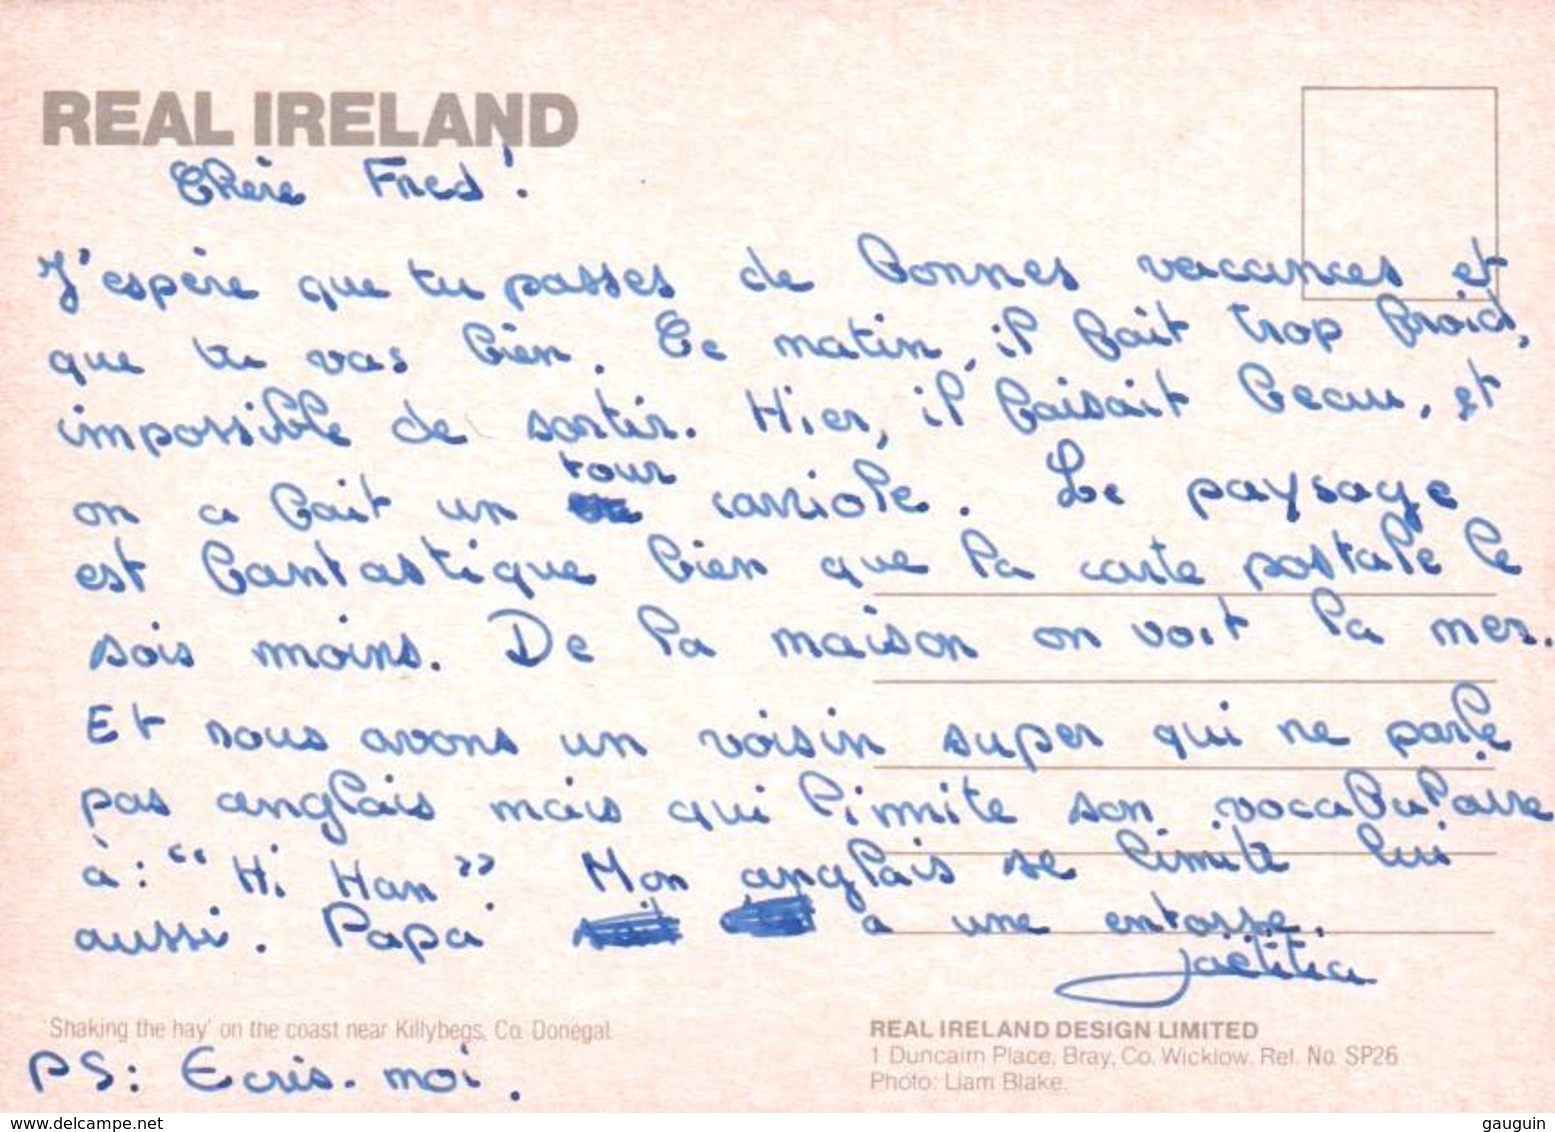 REAL IRELAND
Chère Fred !
J'espère que tu passes de bonnes vacances et
que tu vas bien. Ce matin, il fait trop froid,
impossible de sortir. Hier, il faisait beau, et
on a fait un tour carriole. Le paysage
est fantastique bien que la carte postale le
sois moins. De la maison on voit la mer.
Et nous avons un voisin super qui ne parle
pas anglais mais qui limite son vocabulaire
à : "Hi Han" Mon anglais se limite lui
aussi. Papa a une entorse.
Laëtitia
'Shaking the hay' on the coast near Killybegs, Co. Donegal.
PS: Ecris-moi.
REAL IRELAND DESIGN LIMITED
1 Duncairn Place, Bray, Co. Wicklow. Ref. No. SP26
Photo: Liam Blake.
www.delcampe.net
gauguin